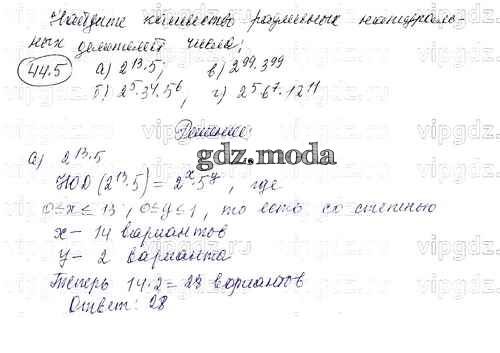 Найдите количество различных натураль-
ных делителей числа:
44.5 а) 2¹³·5; в) 2⁹⁹·3⁹⁹
б) 2⁵·3⁴·5⁶, г) 2⁵·6⁷·12¹¹
Решение:
gdz.moda
а) 2¹³·5
НОД (2¹³·5) = 2ˣ·5ʸ, где
0≤x≤13, 0≤y≤1, то есть со степенью
x - 14 вариантов
y - 2 варианта
Теперь 14·2=28 вариантов
Ответ: 28